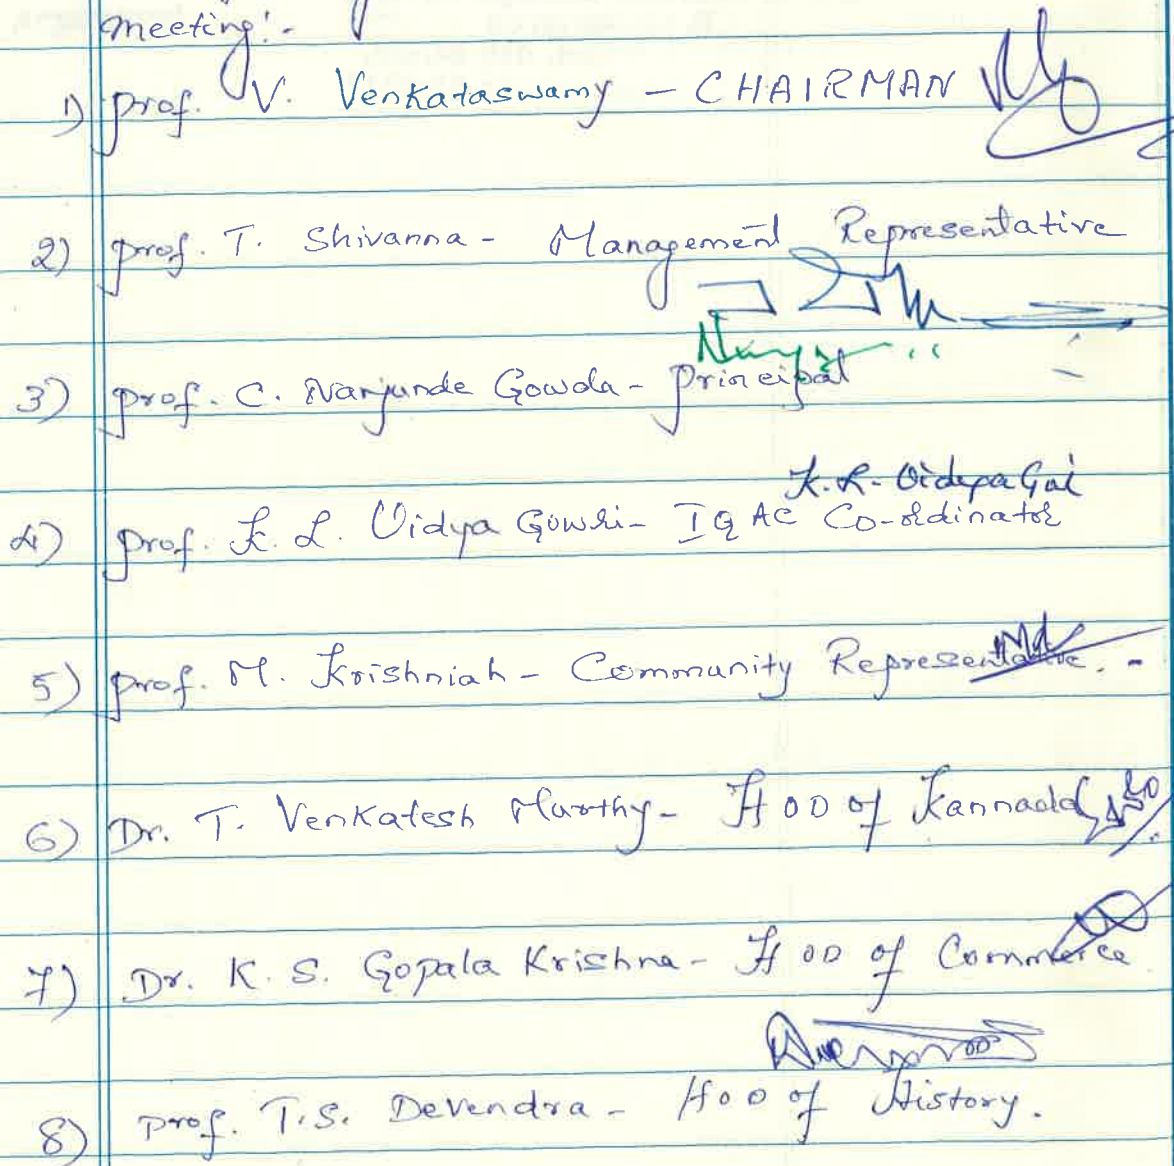 meeting:-
1) prof. V. Venkataswamy - CHAIRMAN
2) prof. T. Shivanna - Management Representative
3) prof. C. Nanjunde Gowda - principal
K. L. Vidya Gowri
4) prof. K. L. Vidya Gowri - IQAC Co-ordinator
5) prof. M. Krishniah - Community Representative. -
6) Dr. T. Venkatesh Murthy - HOD of Kannada
7) Dr. K. S. Gopala Krishna - HOD of Commerce
8) prof. T.S. Devendra - HOD of History.